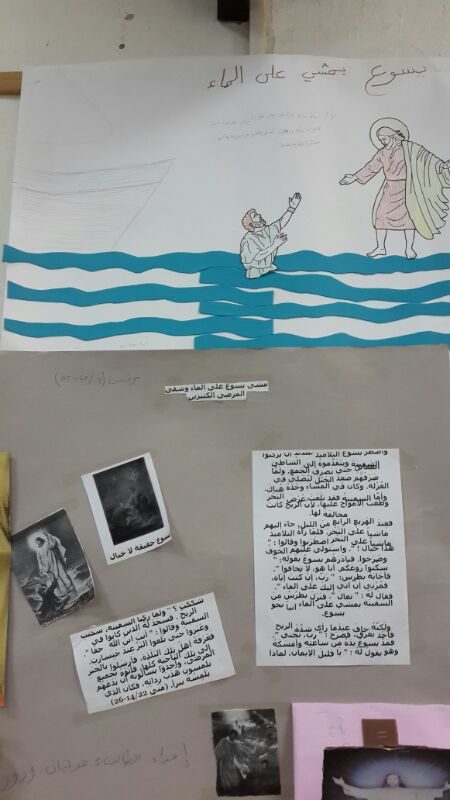 يسوع يمشي على الماء
مرقس (٦/
مشي يسوع على الماء وشفى
المرضى الكثيرين
واضطر يسوع التلاميذ
السفينة ويتقدموه إلى الشاطئ
المقابل حتى يصرف الجمع. ولما
صرفهم صعد الجبل ليصلي في
العزلة. وكان في المساء وحده هناك.
وأما السفينة فقد بلغت عرض البحر
وطغت الأمواج عليها، لأن الريح كانت
مخالفة لها.
فعند الهزيع الرابع من الليل، جاء إليهم
ماشيا على البحر. فلما رآه التلاميذ
ماشيا على البحر اضطربوا وقالوا: "
هذا خيال! ". واستولى عليهم الخوف
وصرخوا. فبادرهم يسوع بقوله: "
سكنوا روعكم. أنا هو، لا تخافوا ".
فأجابه بطرس: " رب، إن كنت إياه،
فمرني أن آتي إليك على الماء ".
فقال له: " تعال ". فنزل بطرس من
السفينة يمشي على الماء آتيا نحو
يسوع.
ولكنه خاف عندما رأى شدة الريح
فأخذ يغرق، فصرخ: " رب، نجني ".
فمد يسوع يده من ساعته وأمسكه
وهو يقول له: " يا قليل الإيمان، لماذا
يسوع حقيقة لا خيال
شككت؟ - ولما ركبا السفينة، سكنت
الريح. فسجد له الذين كانوا في
السفينة وقالوا: " أنت ابن الله حقا "
وعبروا حتى بلغوا البر عند جناسرت.
فعرفه أهل تلك البلدة، فأرسلوا بالخبر
إلى تلك الناحية كلها، فأتوه بجميع
المرضى، وأخذوا يسألونه أن يدعهم
يلمسون هدب ردائه. فكان الذي
يلمسه يبرأ. (متى 14/22-26)
إعداد الطالب: